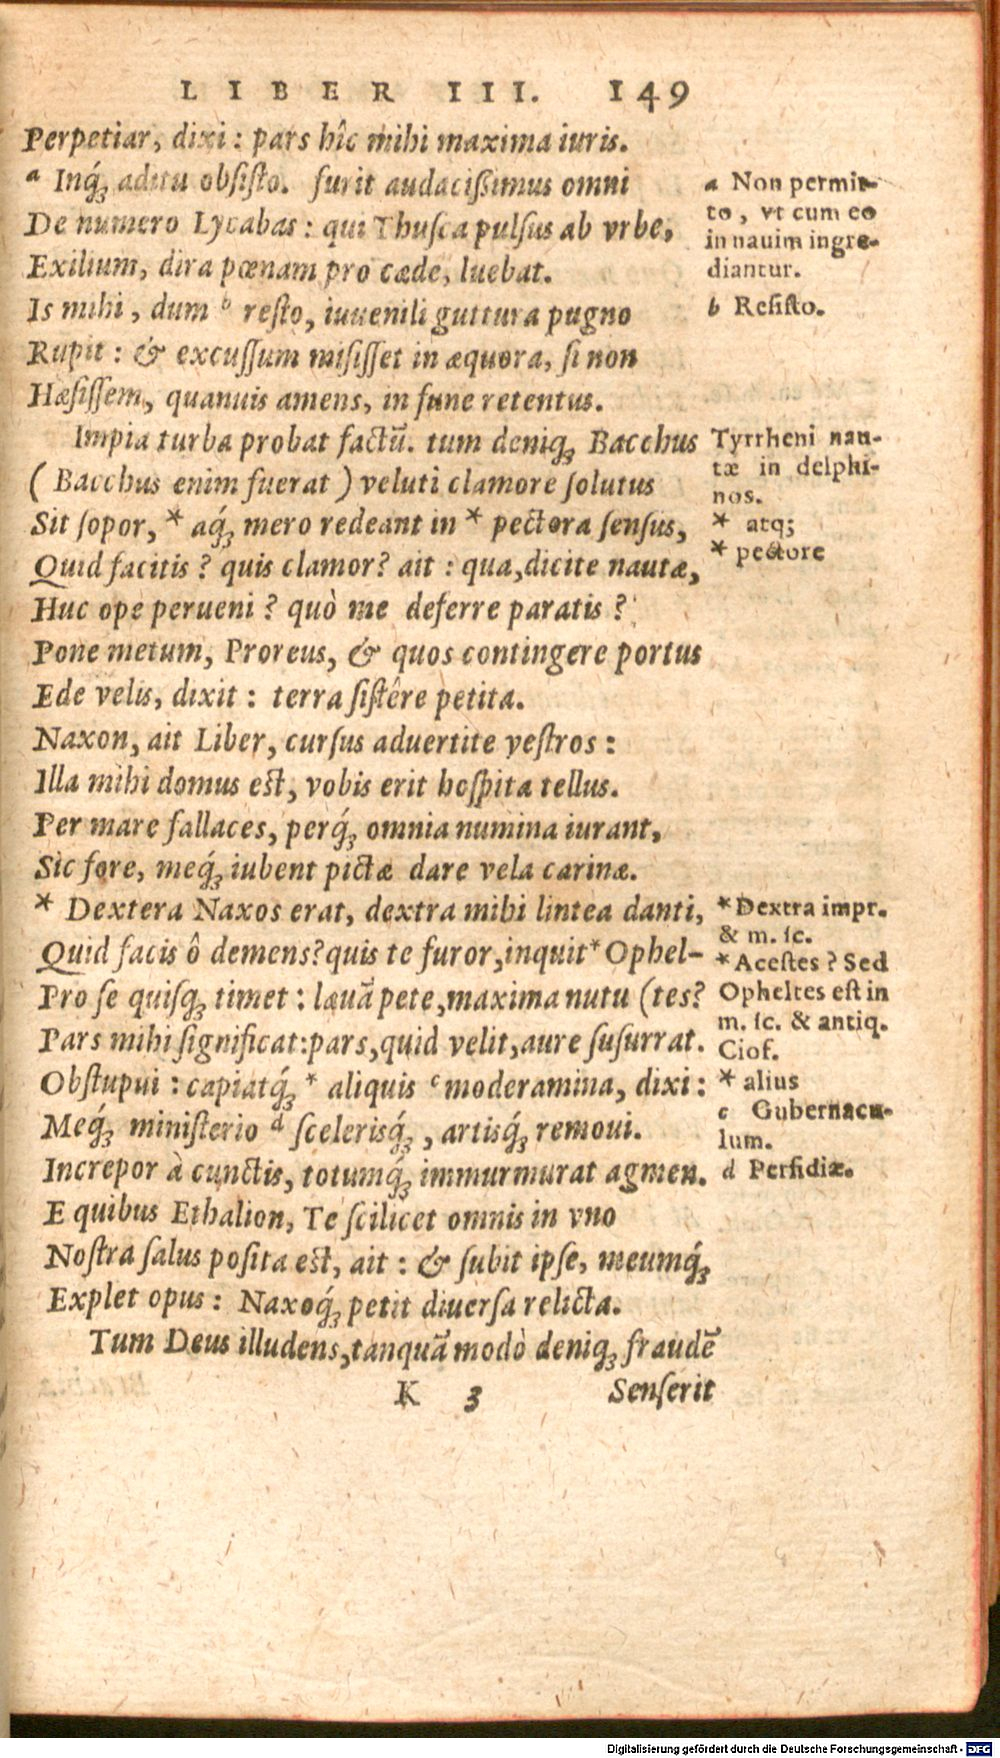 LIBER III. 149
Perpetiar, dixi: pars hîc mihi maxima iuris.
a Inq́ꝫ aditu obſiſto. furit audacißimus omni
De numero Lycabas: qui Thuſca pulſus ab vrbe,
Exilium, dira pœnam pro cæde, luebat.
Is mihi, dum b reſto, iuuenili guttura pugno
Rupit: & excuſſum miſiſſet in æquora, ſi non
Hæſiſſem, quanuis amens, in fune retentus.
Impia turba probat factũ. tum deniqꝫ Bacchus
(Bacchus enim fuerat) veluti clamore ſolutus
Sit ſopor, * aq́ꝫ mero redeant in * pectora ſenſus,
Quid facitis? quis clamor? ait: qua, dicite nautæ,
Huc ope perueni? quò me deferre paratis?
Pone metum, Proreus, & quos contingere portus
Ede velis, dixit: terra ſiſtêre petita.
Naxon, ait Liber, curſus aduertite veſtros:
Illa mihi domus eſt, vobis erit hoſpita tellus.
Per mare fallaces, perq́ꝫ omnia numina iurant,
Sic fore, meq́ꝫ iubent pictæ dare vela carinæ.
* Dextera Naxos erat, dextra mihi lintea danti,
Quid facis ô demens? quis te furor, inquit * Ophel-
Pro ſe quiſqꝫ timet: læuã pete, maxima nutu (tes?
Pars mihi ſignificat: pars, quid velit, aure ſuſurrat.
Obſtupui: capiatq́ꝫ * aliquis c moderamina, dixi:
Meq́ꝫ miniſterio d ſceleriſq́ꝫ, artiſq́ꝫ remoui.
Increpor à cunctis, totumq́ꝫ immurmurat agmen.
E quibus Ethalion, Te ſcilicet omnis in vno
Noſtra ſalus poſita eſt, ait: & ſubit ipſe, meumq́ꝫ
Explet opus: Naxoq́ꝫ petit diuerſa relicta.
Tum Deus illudens, tanquã modò deniqꝫ fraudẽ
K 3 Senſerit
a Non permit-
to, vt cum eo
in nauim ingre-
diantur.
b Reſiſto.
Tyrrheni nau-
tæ in delphi-
nos.
* atq;
* pectore
* Dextra impr.
& m. ſc.
* Aceſtes? Sed
Opheltes eſt in
m. ſc. & antiq.
Ciof.
* alius
c Gubernacu-
lum.
d Perfidiæ.
Digitalisierung gefördert durch die Deutsche Forschungsgemeinschaft - DFG